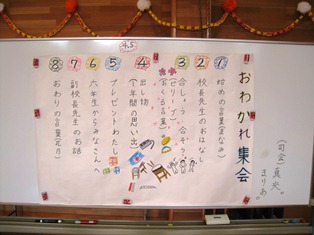 おわかれ集会
（司会）真央。
まりあ。
①
始めの言葉
②
校長先生のおはなし
③
合しょう、合そう
4.5
④
出し物
（1年間の思い出）
⑤
プレゼントわたし
⑥
六年生からみなさんへ
⑦
副校長先生のお話
⑧
おわりの言葉